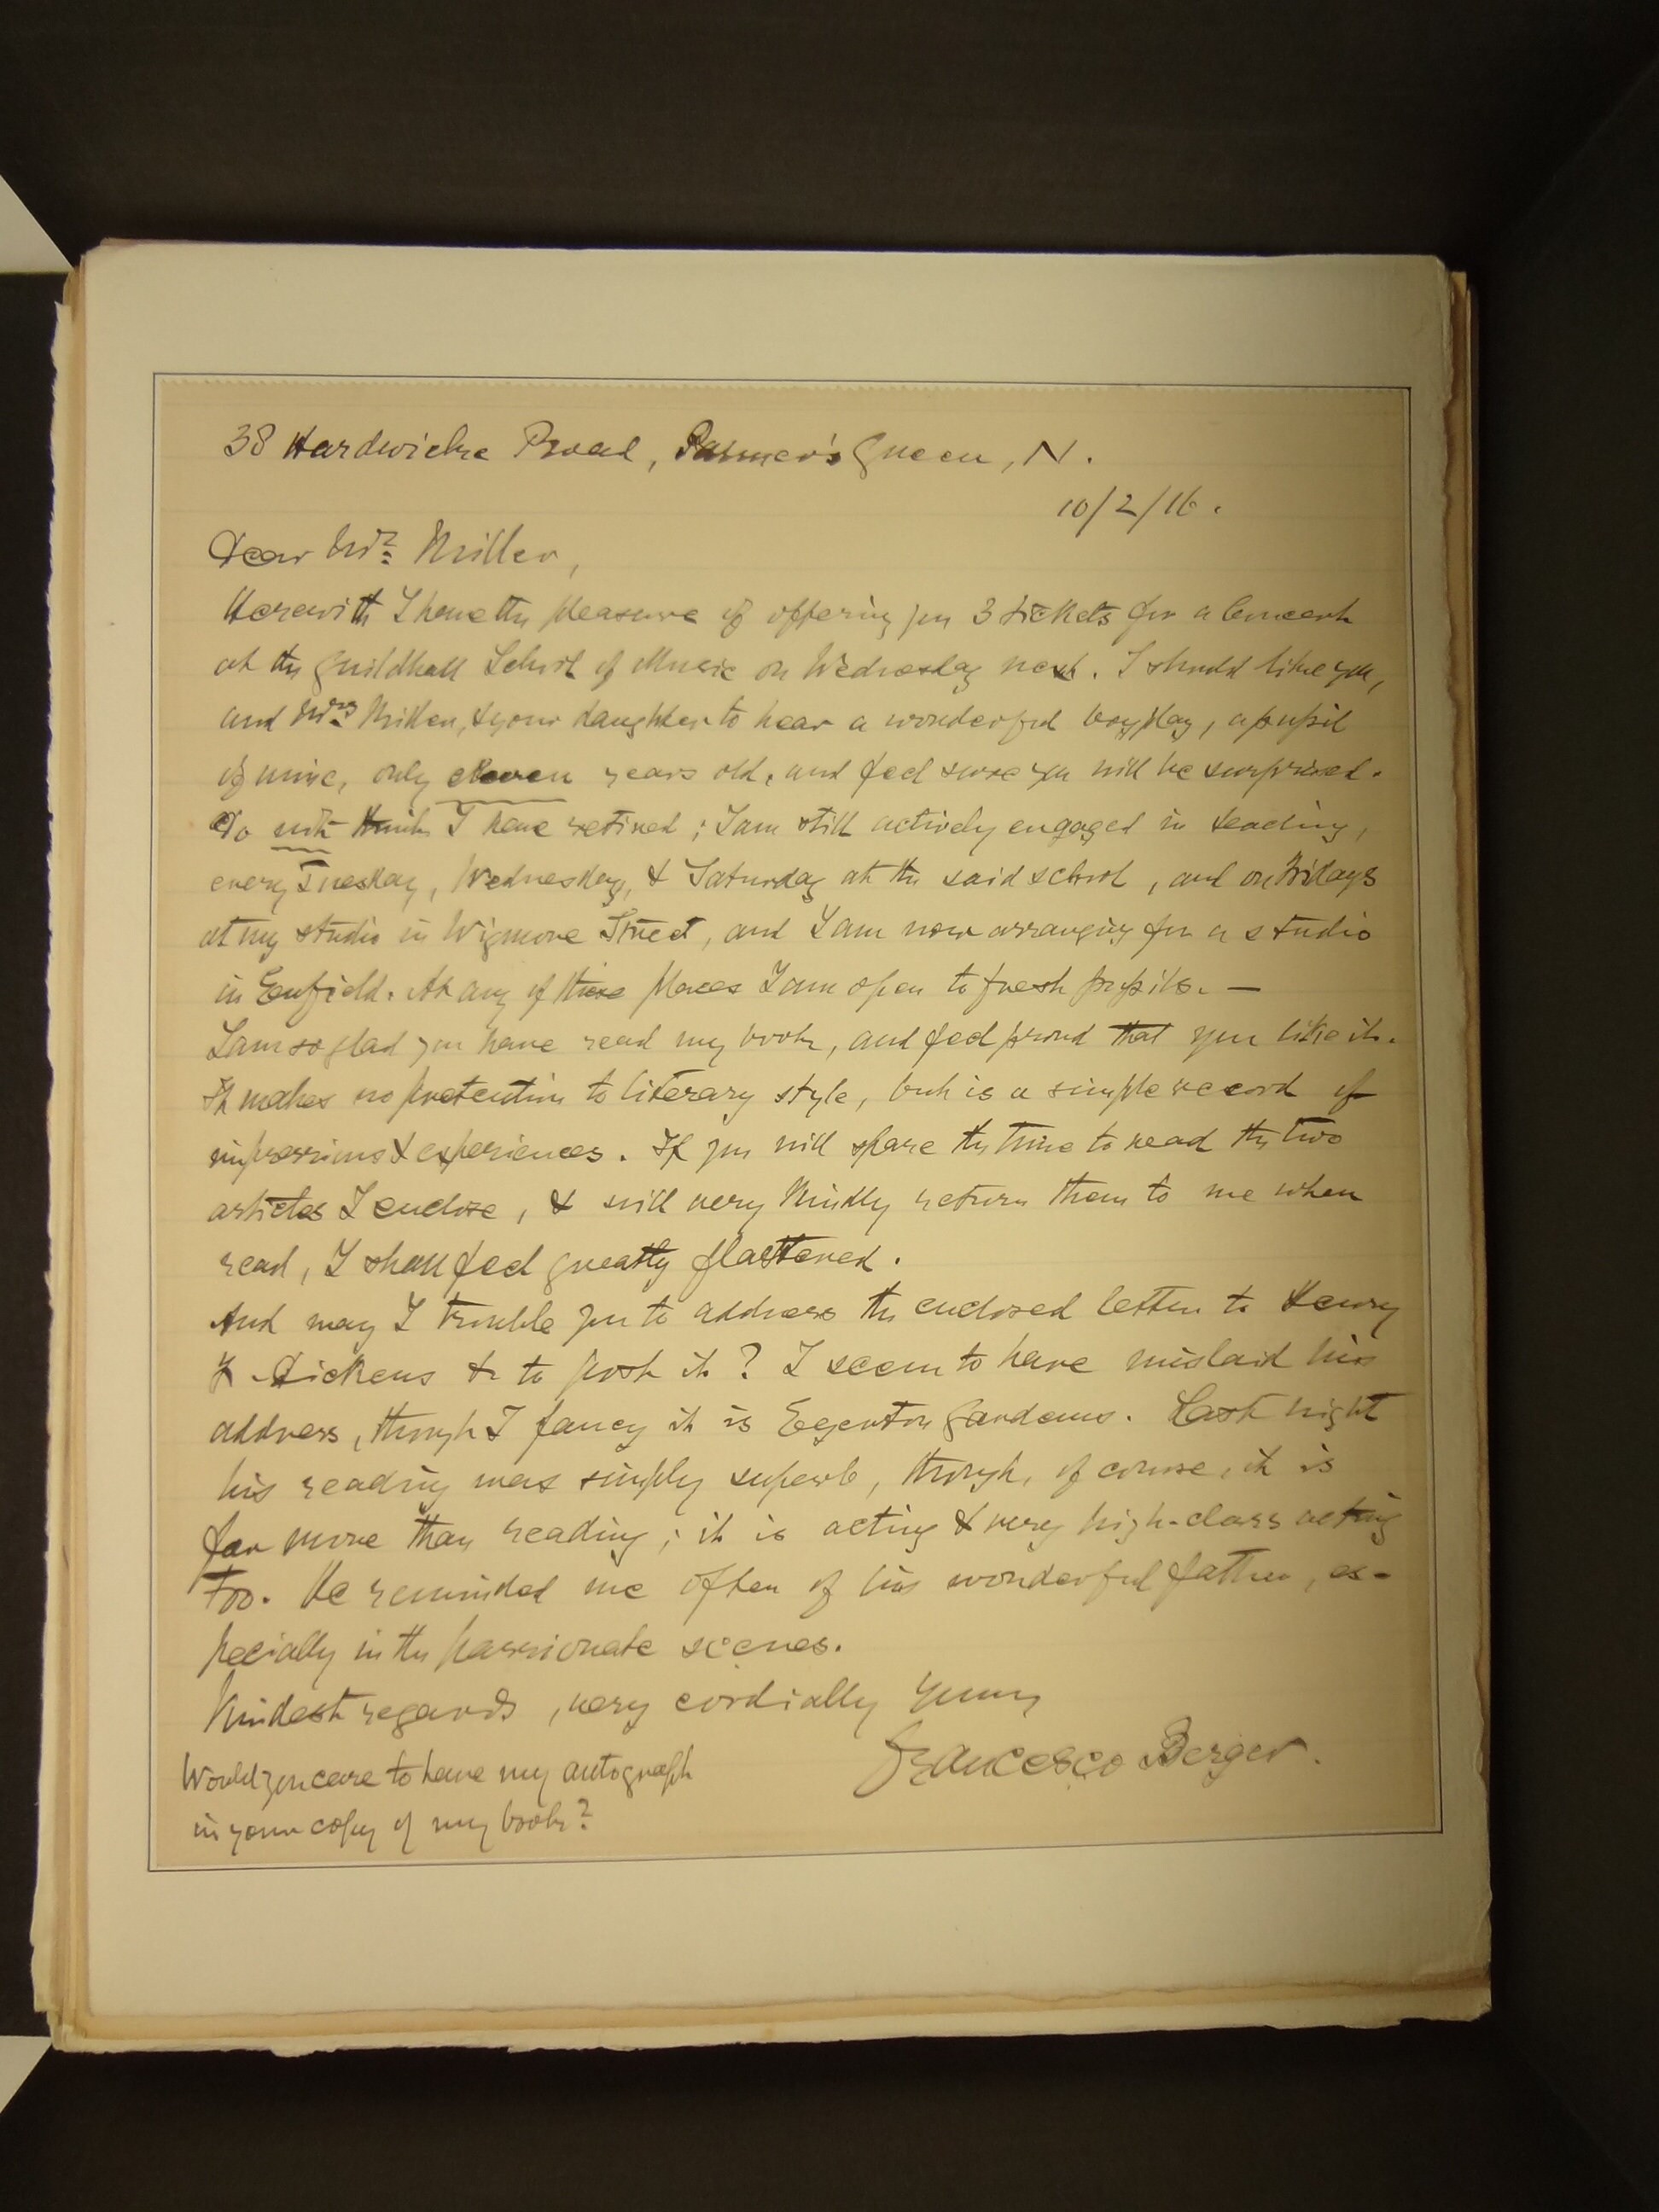 38 Hardwicke Road, Palmer's Green, N.
10/2/16.
Dear Mr. Miller,
Herewith I have the pleasure of offering you 3 tickets for a Concert
at the Guildhall School of Music on Wednesday next. I should like you,
and Mrs Miller, & your daughter to hear a wonderful boy play, a pupil
of mine, only eleven years old, and feel sure you will be surprised.
Do not think I have retired; I am still actively engaged in teaching,
every Tuesday, Wednesday, & Saturday at the said school, and on Fridays
at my studio in Wigmore Street, and I am now arranging for a studio
in Enfield. At any of these places I am open to fresh pupils. —
I am so glad you have read my book, and feel proud that you like it.
It makes no pretention to literary style, but is a simple record of
impressions & experiences. If you will spare the time to read the two
articles I enclose, & will very kindly return them to me when
read, I shall feel greatly flattered.
And may I trouble you to address the enclosed letter to Henry
F Dickens & to post it? I seem to have mislaid his
address, though I fancy it is Egerton Gardens. Last night
his reading was simply superb, though, of course, it is
far more than reading; it is acting & very high-class acting
too. He reminded me often of his wonderful father, es-
pecially in the passionate scenes.
Kindest regards, very cordially yours
Francesco Berger.
Would you care to have my autograph
in your copy of my book?